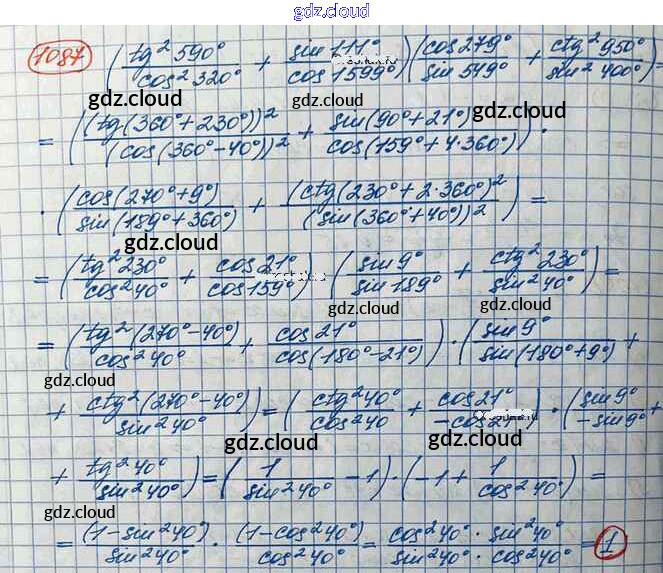 gdz.cloud
1087 (tg²590°/cos²320° + sin111°/cos1599°)(cos279°/sin549° + ctg²950°/sin²400°)=
gdz.cloud
gdz.cloud
= ((tg(360°+230°))²/(cos(360°-40°))² + sin(90°+21°)/cos(159°+4·360°)) ·
· (cos(270°+9°)/sin(189°+360°) + (ctg(230°+2·360°)²/(sin(360°+40°))²) =
gdz.cloud
= (tg²230°/cos²40° + cos21°/cos159°) · (sin9°/sin189° + ctg²230°/sin²40°) =
gdz.cloud
gdz.cloud
gdz.cloud
= (tg²(270°-40°)/cos²40° + cos21°/cos(180°-21°)) · (sin9°/sin(180°+9°) +
gdz.cloud
gdz.cloud
+ ctg²(270°-40°)/sin²40°) = (ctg²40°/cos²40 + cos21°/-cos21°) · (sin9°/-sin9° +
gdz.cloud
+ tg²40°/sin²40°) = (1/sin²40° - 1) · (-1 + 1/cos²40°) =
gdz.cloud
gdz.cloud
= (1-sin²40°)/sin²40° · (1-cos²40°)/cos²40° = cos²40° · sin²40°/sin²40° · cos²40° = 1
gdz.cloud
gdz.cloud